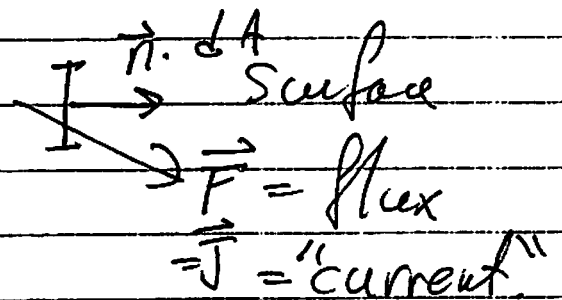 n⃗. dA
Surface
F⃗ = flux
= J⃗ = "current"